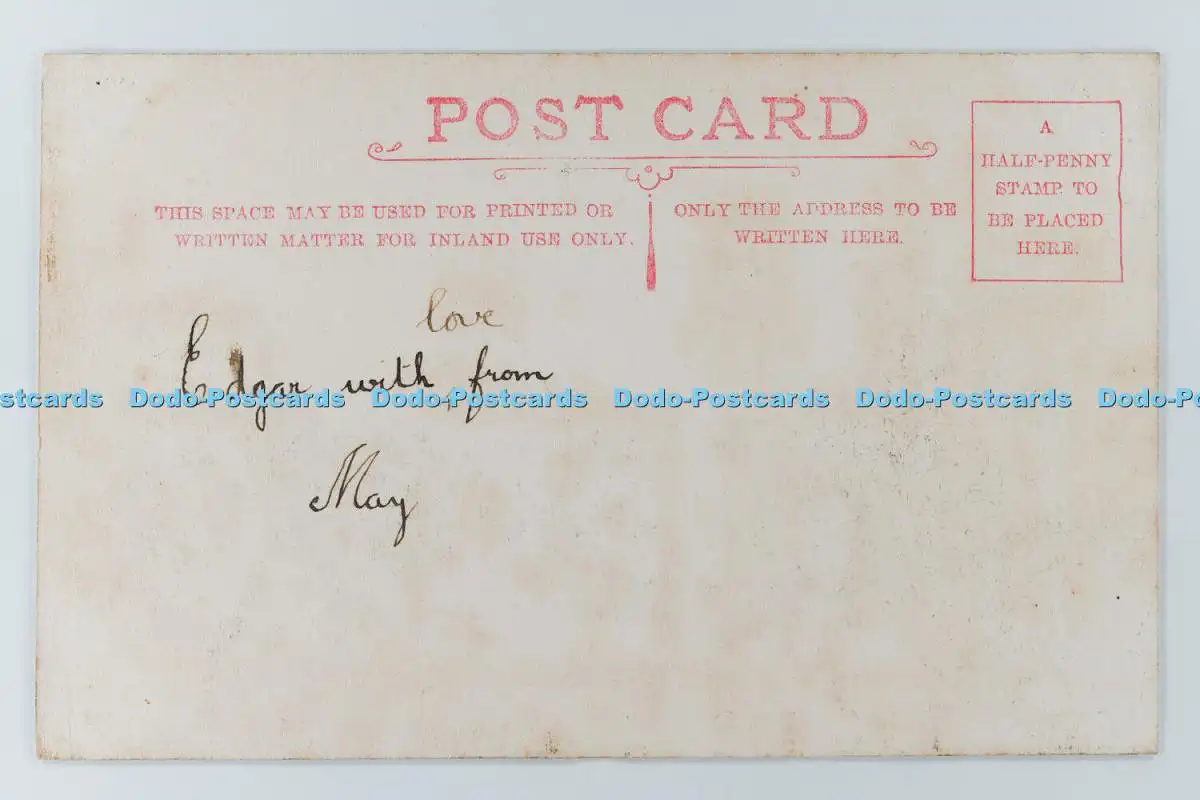 POST CARD
THIS SPACE MAY BE USED FOR PRINTED OR
WRITTEN MATTER FOR INLAND USE ONLY.
ONLY THE ADDRESS TO BE
WRITTEN HERE.
A
HALF-PENNY
STAMP TO
BE PLACED
HERE.
love
Edgar with from
stcards Dodo-Postcards Dodo-Postcards Dodo-Postcards Dodo-Postcards Dodo-Po
May